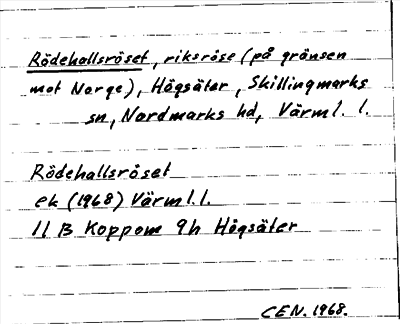 Rödehallsröset, riksröse (på gränsen
mot Norge), Högsäter, Skillingmarks
sn, Nordmarks hd, Värml. l.
Rödehallsröset
ek (1968) Värml. l.
11 B Koppom 9h Högsäter
CEN. 1968.